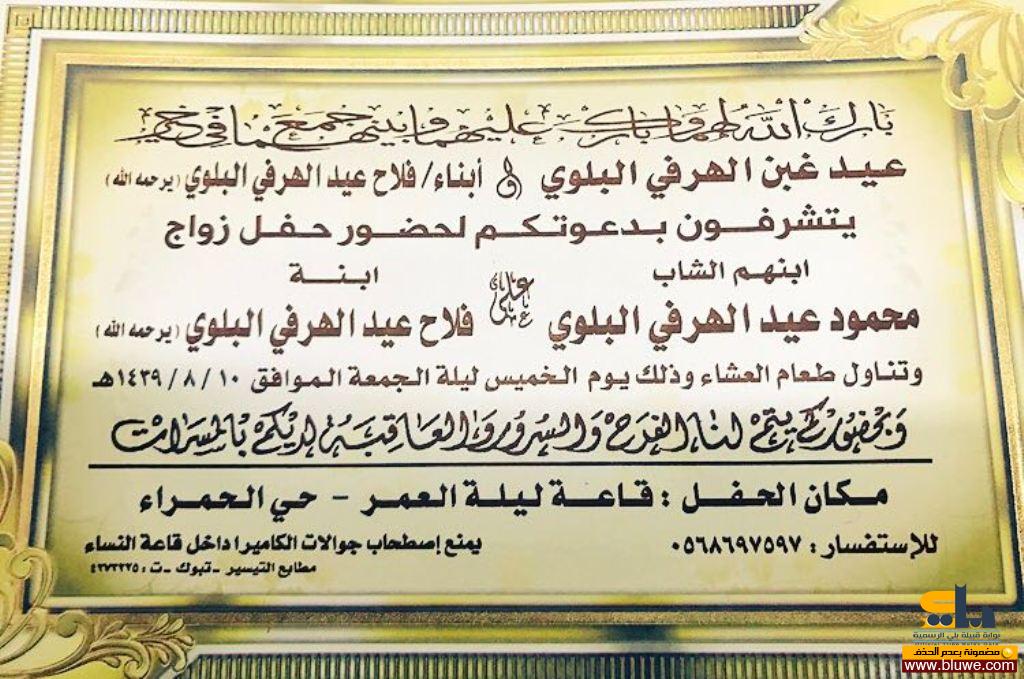 بارك الله لهما وبارك عليهما وبينهما جمع بينهما في خير
عيد غبن الهرفي البلوي و أبناء/ فلاح عيد الهرفي البلوي (يرحمه الله)
يتشرفون بدعوتكم لحضور حفل زواج
ابنهم الشاب على ابنة
محمود عيد الهرفي البلوي فلاح عيد الهرفي البلوي (يرحمه الله)
وتناول طعام العشاء وذلك يوم الخميس ليلة الجمعة الموافق ١٠ / ٨ / ١٤٣٩هـ
وبحضوركم يتم لنا الفرح والسرور والعاقبة لديكم بالمسرات
مكان الحفل : قاعة ليلة العمر - حي الحمراء
للإستفسار : ٠٥٦٨٦٩٧٥٩٧ يمنع إصطحاب جوالات الكاميرا داخل قاعة النساء
مطابع التيسير - تبوك - ت : ٤٢٧٣٢٢٥
بلي
بوابة قبيلة بلي الرسمية
مضمونة بعدم الحذف
www.bluwe.com